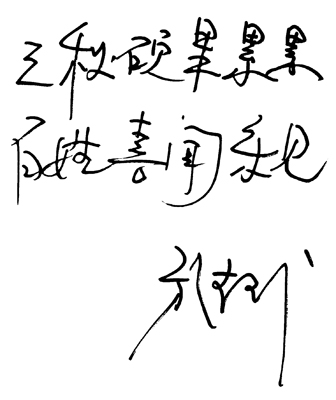 三秋硕果累累
百姓喜闻乐见